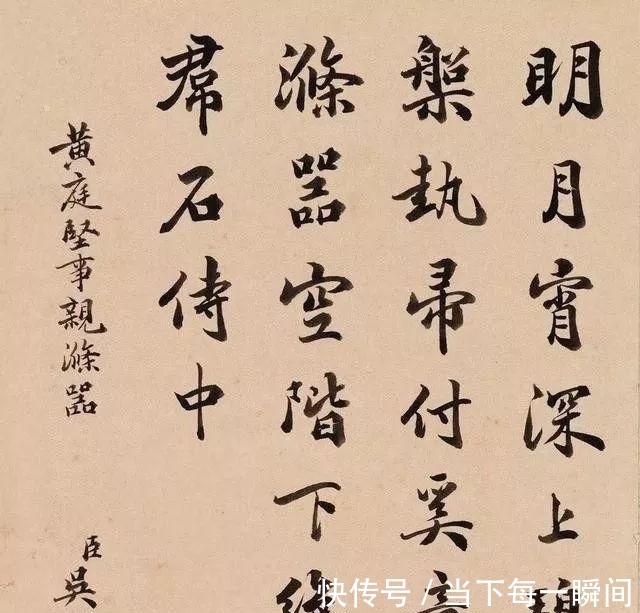 明月宵深上
槃執帚付奚
滌器空階下
帬石侍中
黄庭堅事親滌器
臣吳
快传号 / 当下每一瞬间